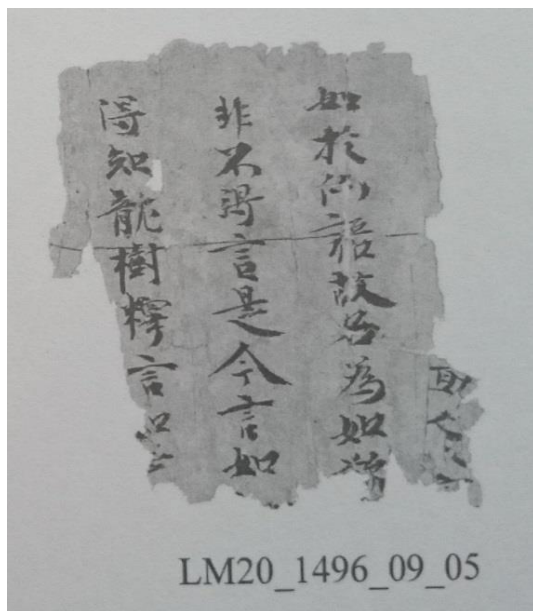 如於向語故名為如
非不得言是今言如
得知龍樹釋言如
LM20_1496_09_05